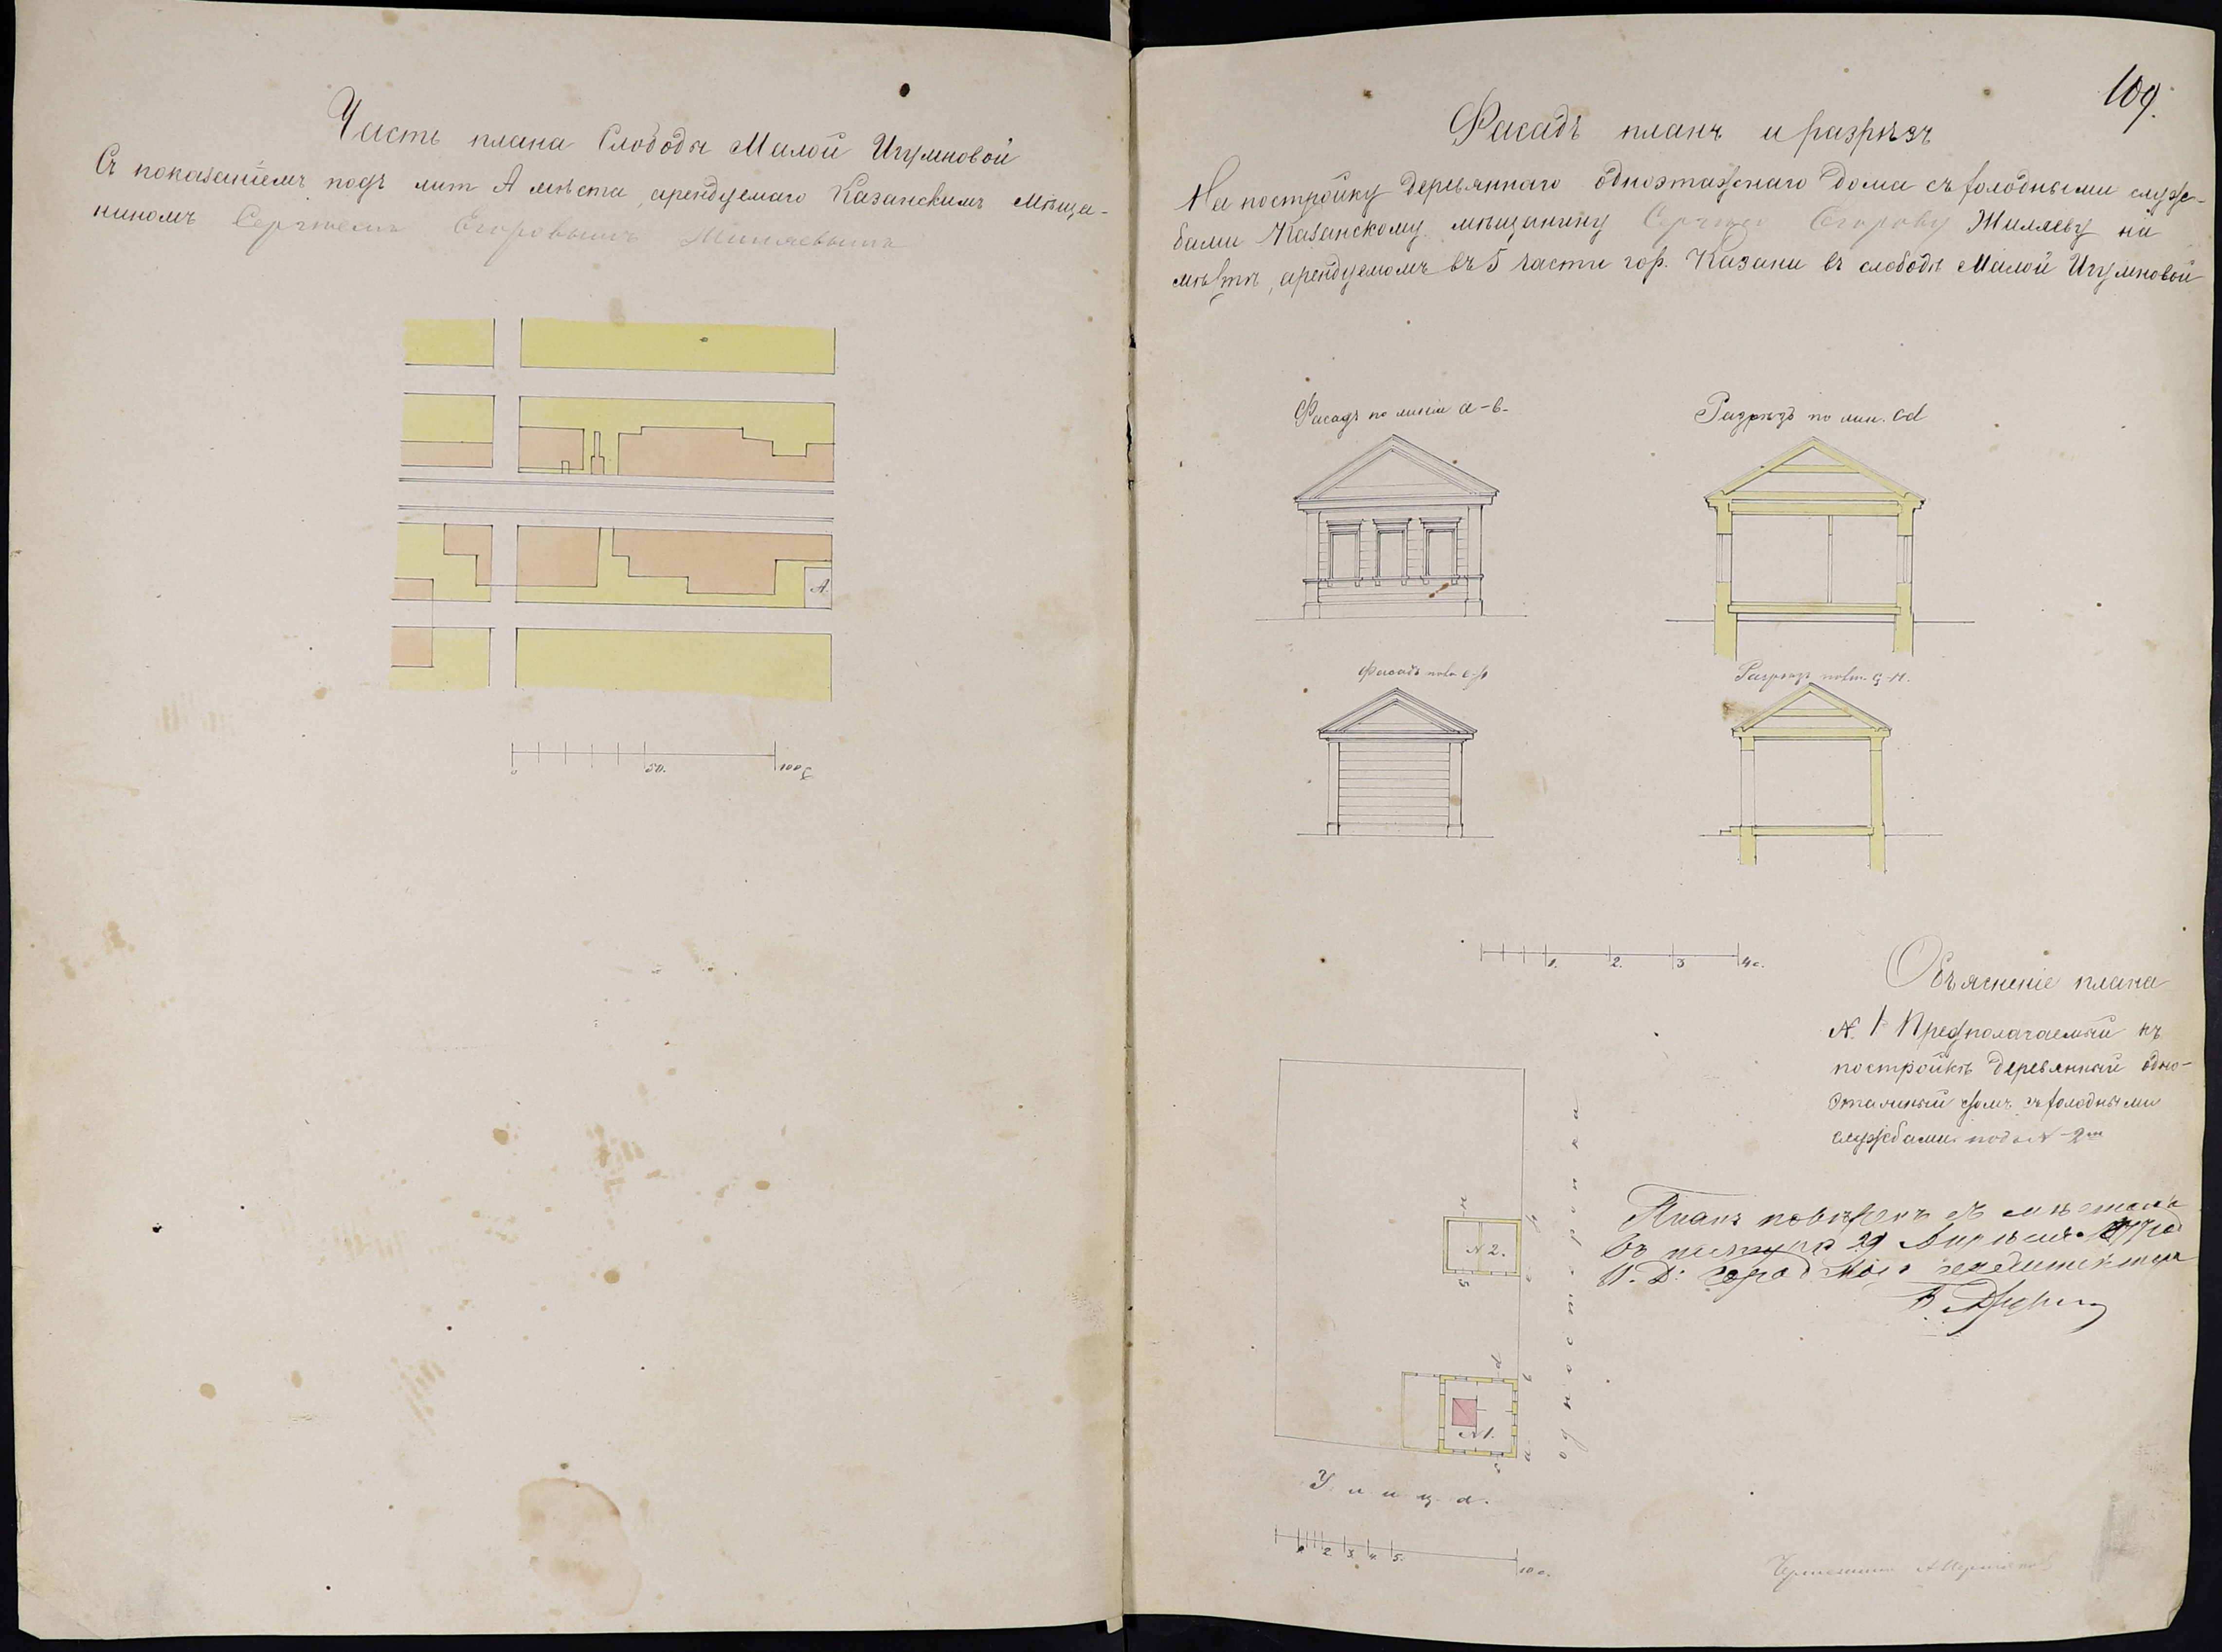 Часть плана Слободы Малой Игумновой
Съ показаніемъ подъ лит А мѣста, арендуемаго Казанскимъ мѣща-
ниномъ Сергѣемъ Егоровымъ Жиляевымъ
А.
0 50. 100 с
109.
Фасадъ планъ и разрѣзъ
На постройку деревяннаго одноэтажнаго дома съ холодными служ-
бами Казанскому мѣщанину Сергѣю Егорову Жиляеву на
мѣстѣ, арендуемомъ въ 5 части гор. Казани въ слободѣ Малой Игумновой
Фасадъ по линіи а-в-
Разрѣзъ по лин. cd
Фасадъ по ли e-f
Разрѣзъ по лин. g-H.
1. 2. 3 4 с.
Объясненіе плана
N. 1 Предполагаемый къ
постройкѣ деревянный одно-
этажный домъ съ холодными
службами подъ N 2мъ
Планъ повѣренъ съ мѣстомъ
29 Апрѣля 1877 год
И. Д. город архитектора
N 2.
N 1.
Улица.
1 2 3 4 5. 10 с.